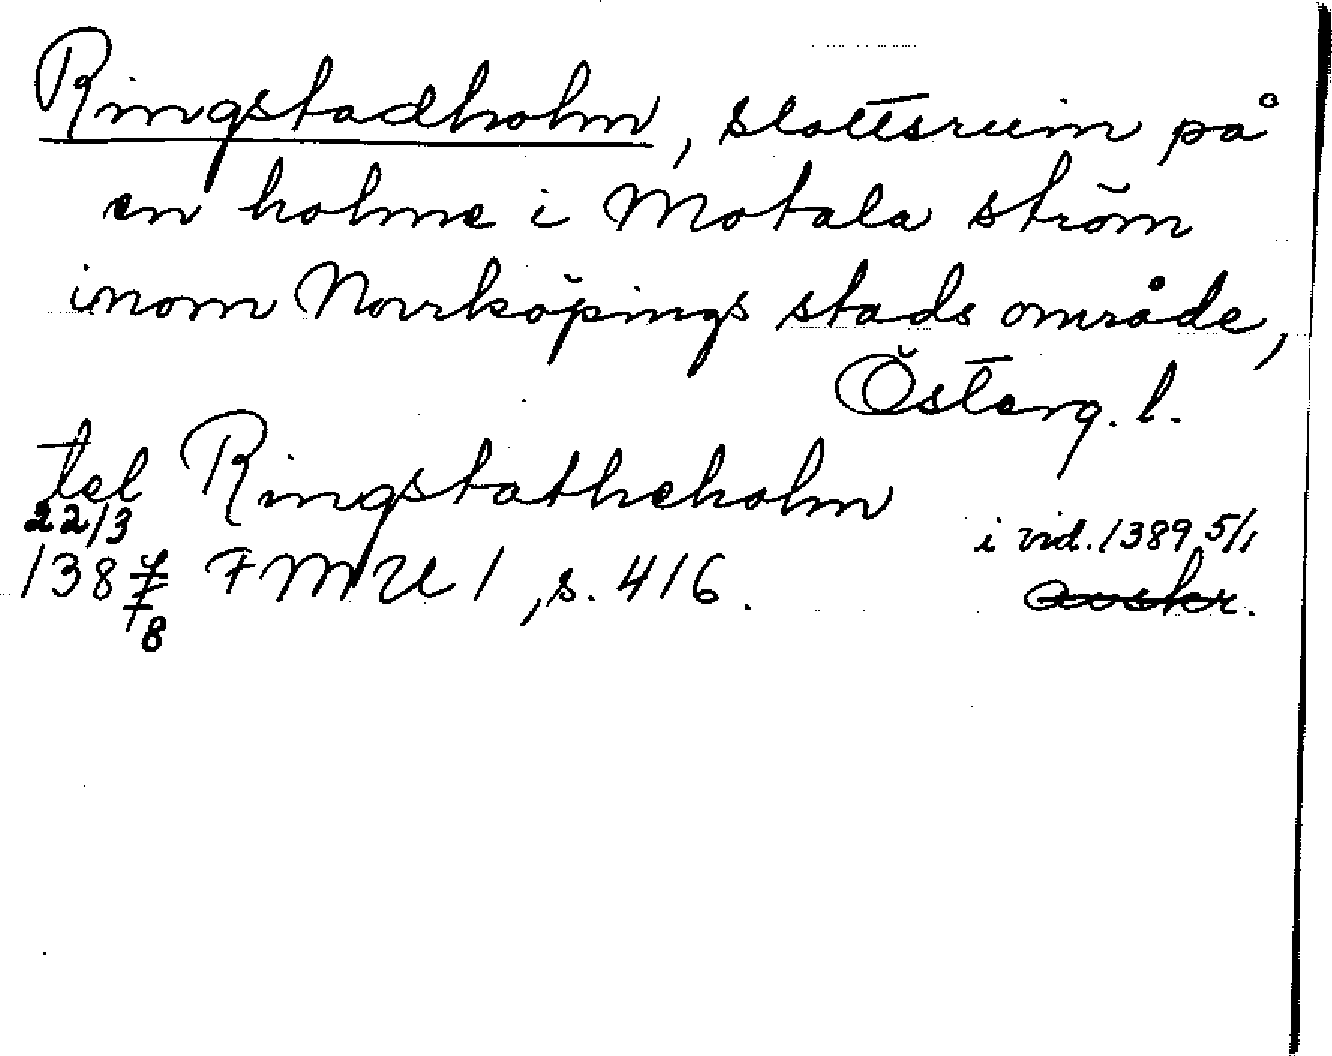 Ringstadholm, slottsruin på
en holme i Motala ström
inom Norrköpings stads område,
Österg. l.
tel Ringstatheholm
22/3 i vid. 1389 5/1
138 FMU 1, s. 416. avskr.
8